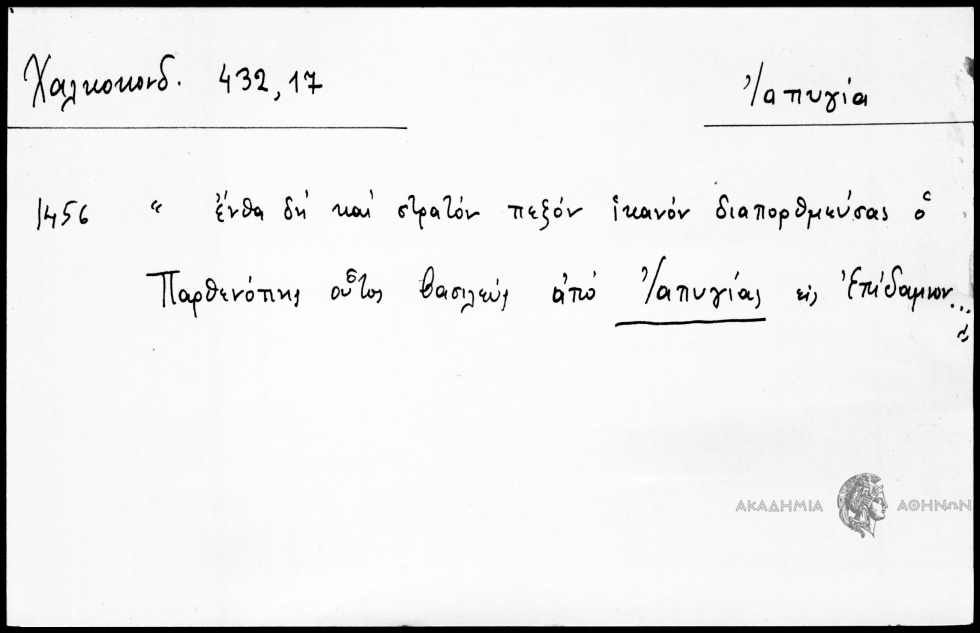 Χαλκοκονδ. 432,17
Ἰαπυγία
1456 “ ἔνθα δή καί στρατόν πεζόν ἱκανόν διαπορθμεύσας ὁ
Παρθενόπης οὗτος βασιλεύς ἀπό Ἰαπυγίας εἰς Ἐπίδαμνον...”
ΑΚΑΔΗΜΙΑ ΑΘΗΝΩΝ